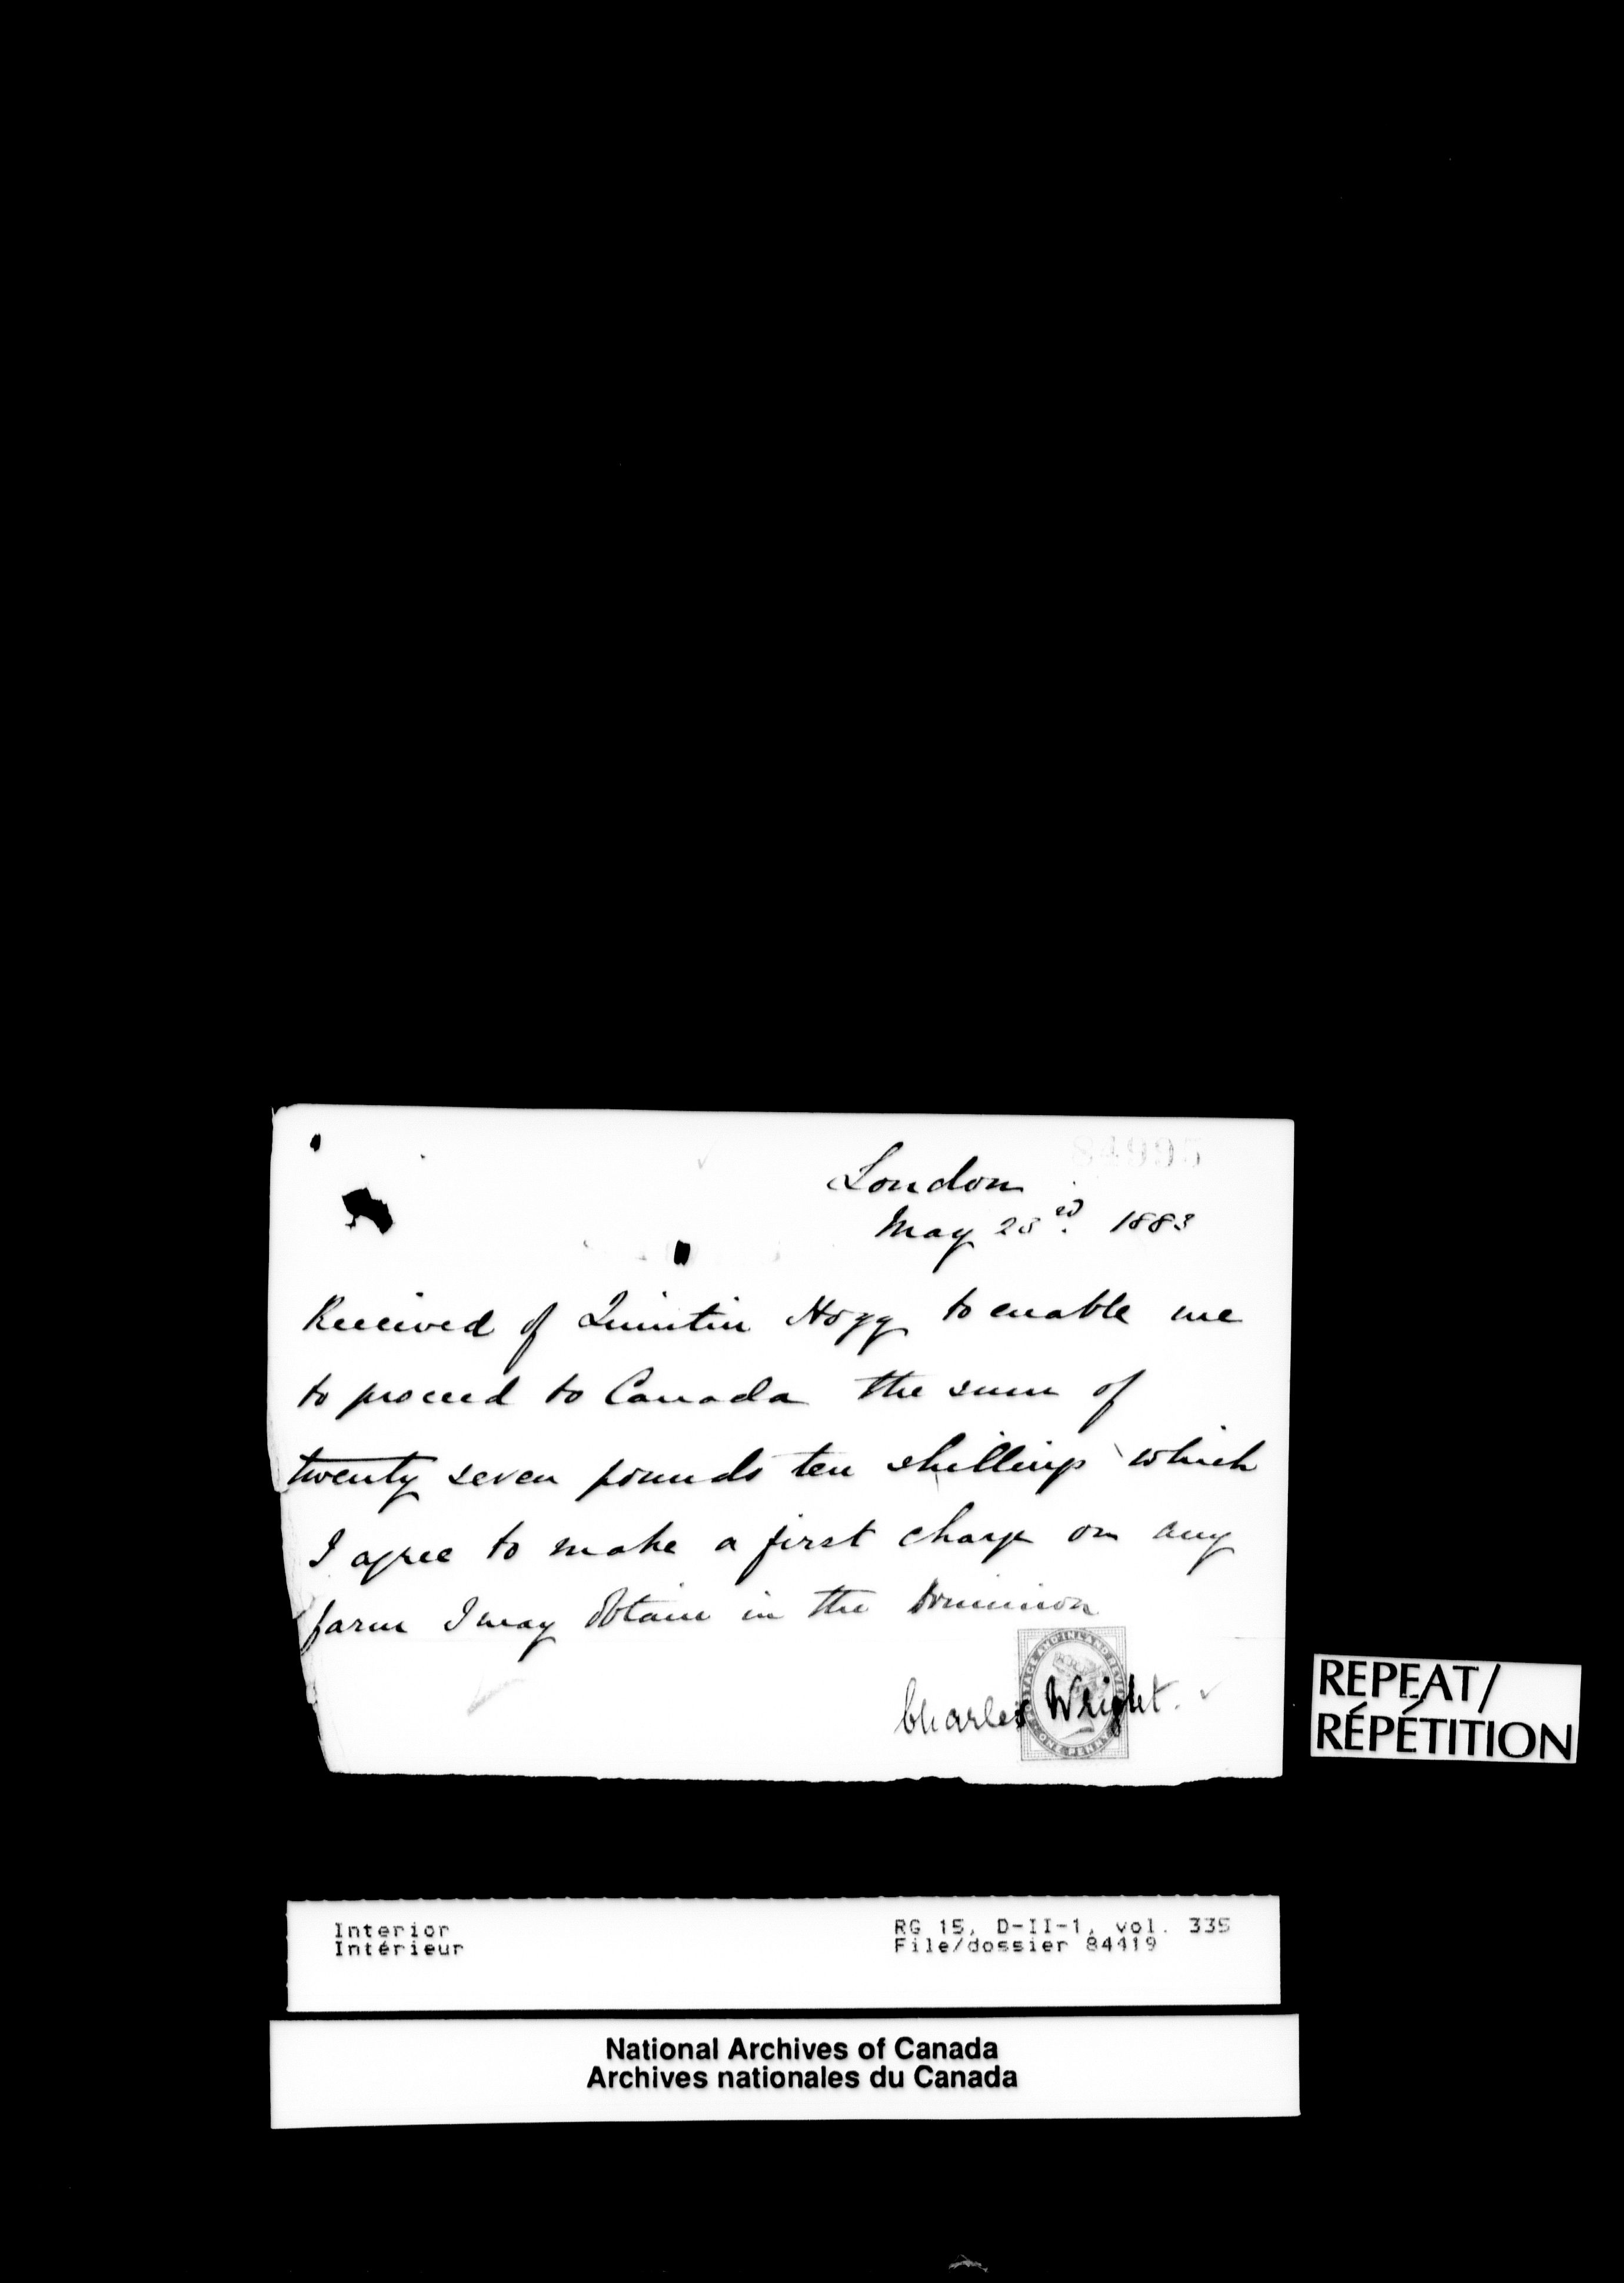 84995
London
May 23rd. 1883
Received of Quintin Hogg to enable me
to proceed to Canada the sum of
twenty seven pounds ten shillings which
I agree to make a first charge on any
farm I may obtain in the Dominion
POSTAGE AND INLAND REVENUE
ONE PENNY
Charles Wright.
REPEAT/
RÉPÉTITION
Interior
Intérieur
RG 15, D-II-1, vol. 335
File/dossier 84419
National Archives of Canada
Archives nationales du Canada